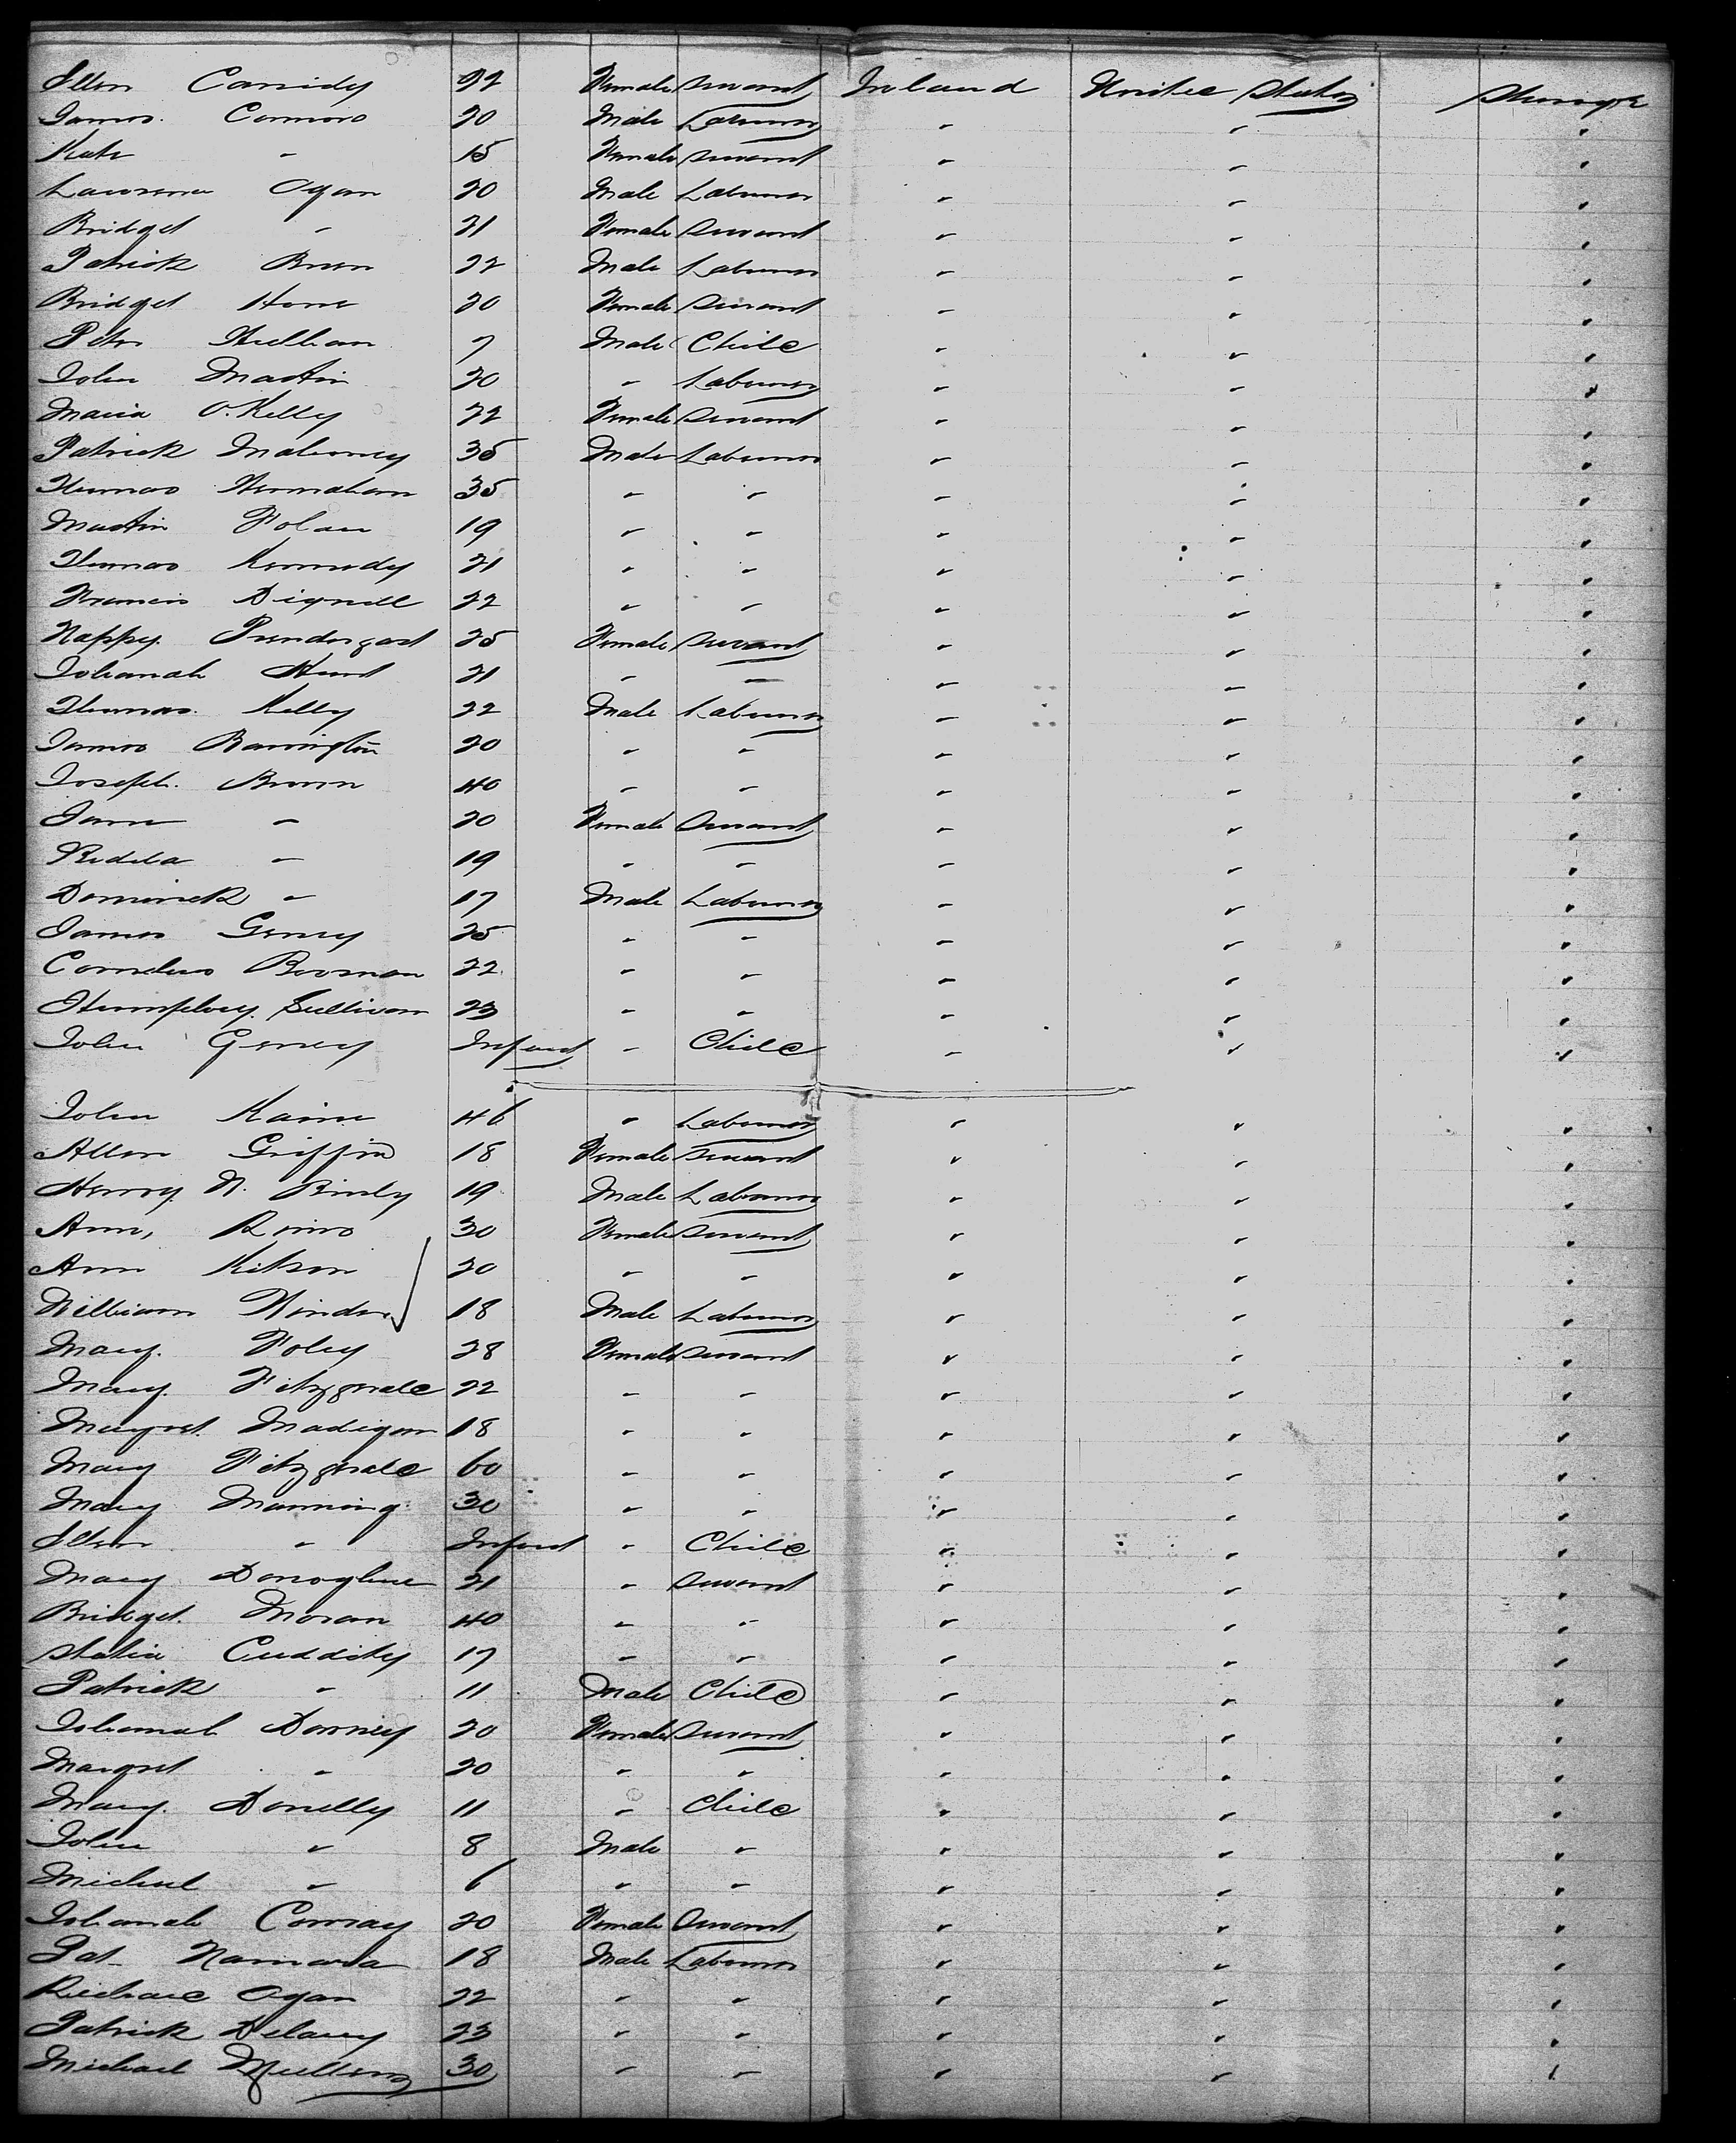 Ellen Cassidy 22 Female Servant Ireland United States Steerage
James Connors 20 Male Labourer " " "
Kate " 15 Female Servant " " "
Lawrence Ogan 20 Male Labourer " " "
Bridget " 21 Female Servant " " "
Patrick Bren 22 Male Labourer " " "
Bridget Hone 20 Female Servant " " "
Peter 7 Male Child " " "
John Martin 20 " Labourer " " "
Maria O.Kelly 22 Female Servant " " "
Patrick Mahoney 35 Male Labourer " " "
Thomas 35 " " " " "
Martin Folan 19 " " " " "
Thomas Kennedy 21 " " " " "
Francis Dignell 22 " " " " "
Nappy Prendergast 25 Female Servant " " "
Johanah Hunt 21 " " " " "
Thomas Kelly 22 Male Labourer " " "
James Barrington 20 " " " " "
Joseph Brown 40 " " " " "
Jane " 20 Female Servant " " "
" 19 " " " " "
Dominick " 17 Male Labourer " " "
James Geney 25 " " " " "
Cornelius Brosnan 22 " " " " "
Humphrey Sullivan 23 " " " " "
John Geney Infant " Child " " "
John Kaine 46 " Labourer " " "
Allen Griffin 18 Female Servant " " "
Henry N. 19 Male Labourer " " "
Ann 30 Female Servant " " "
Ann Kitson 20 " " " " "
William 18 Male Labourer " " "
Mary Foley 28 Female Servant " " "
Mary Fitzgerald 22 " " " " "
Margret Madigan 18 " " " " "
Mary Fitzgerald 60 " " " " "
Mary Manning 30 " " " " "
Ellen " Infant " Child " " "
Mary Donoghue 21 " Servant " " "
Bridget Moran 40 " " " " "
Statia Cuddihy 17 " " " " "
Patrick " 11 Male Child " " "
Johanah Downey 20 Female Servant " " "
Margret " 20 " " " " "
Mary Donelly 11 " Child " " "
John " 8 Male " " " "
Micheal " 6 " " " " "
Johanah Conray 20 Female Servant " " "
Pat Namara 18 Male Labourer " " "
Richard Ogan 22 " " " " "
Patrick Delany 23 " " " " "
Michael Mullens 30 " " " " "